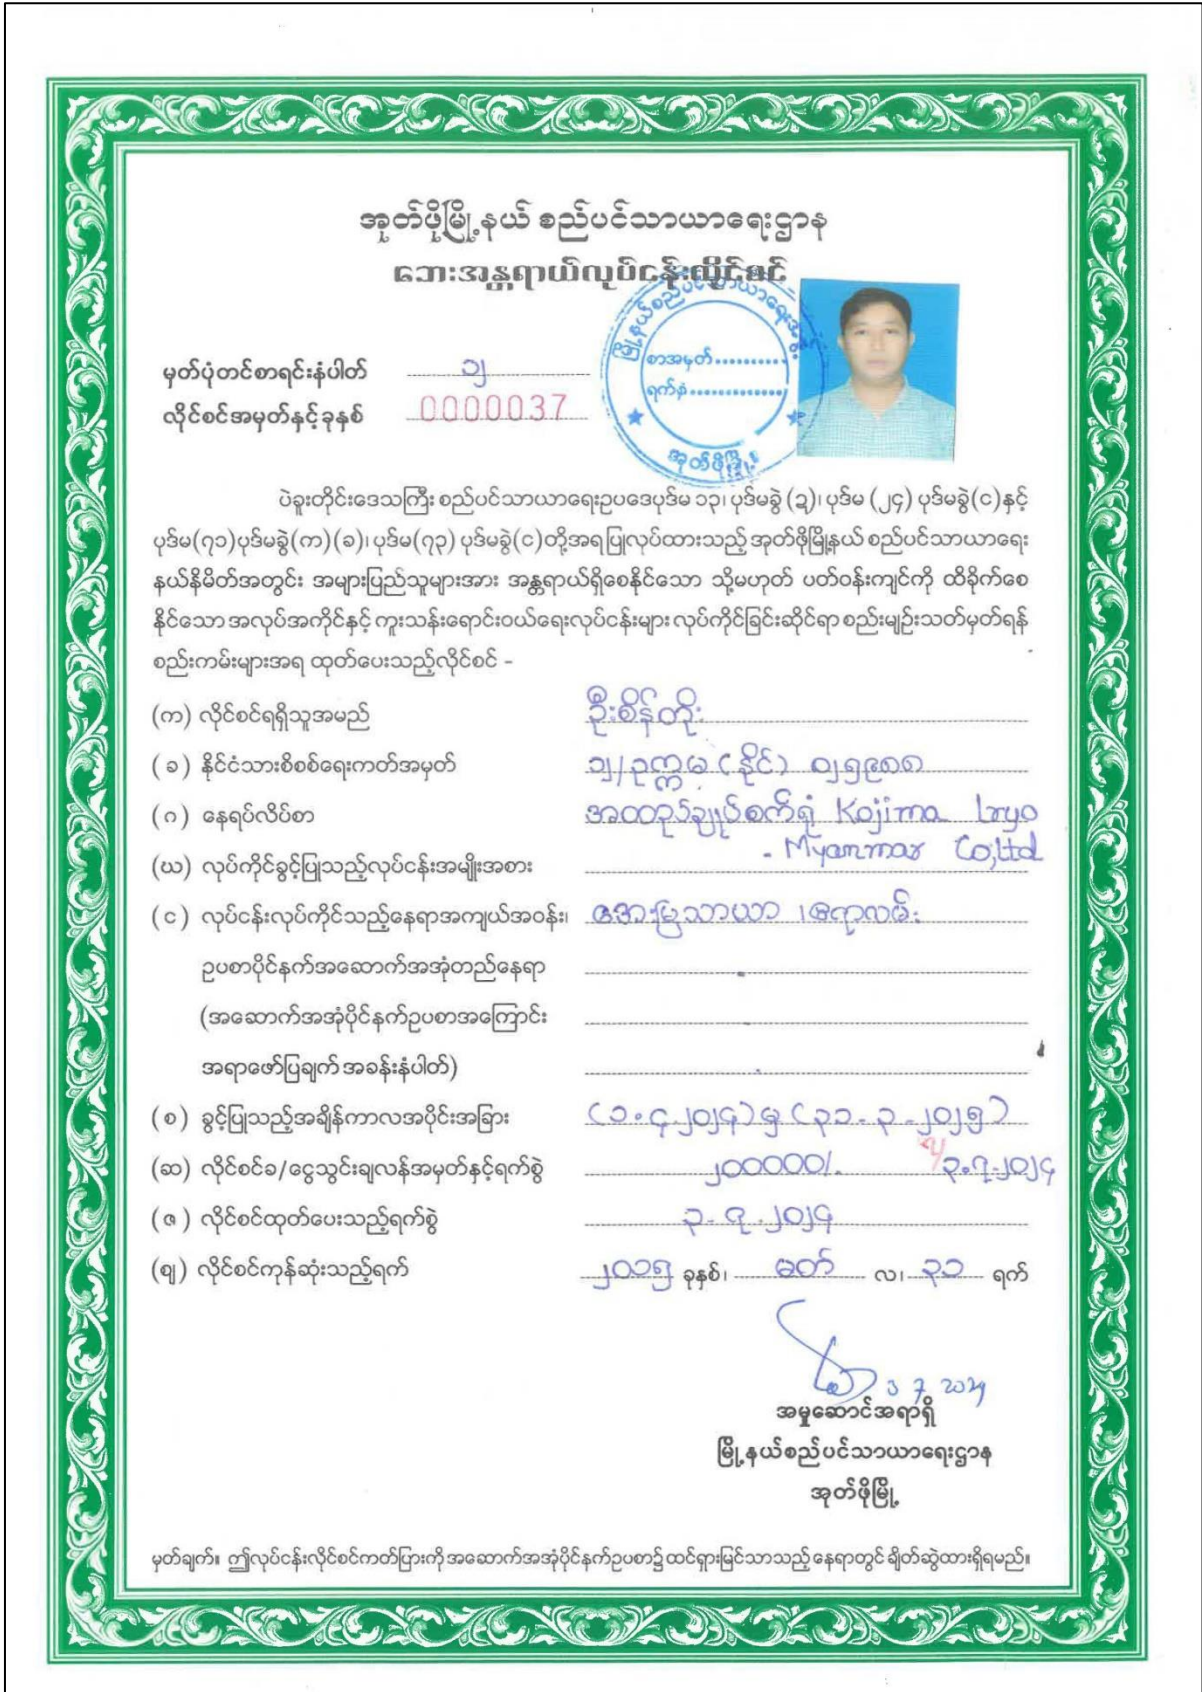 အုတ်ဖိုမြို့နယ် စည်ပင်သာယာရေးဌာန
ဘေးအန္တရာယ်လုပ်ငန်းလိုင်စင်
မြို့နယ်စည်ပင်သာယာရေး
စာအမှတ်
ရက်စွဲ
အုတ်ဖိုမြို့
မှတ်ပုံတင်စာရင်းနံပါတ် ၁၂
လိုင်စင်အမှတ်နှင့်ခုနှစ် 0000037
ပဲခူးတိုင်းဒေသကြီး စည်ပင်သာယာရေးဥပဒေပုဒ်မ ၁၃၊ ပုဒ်မခွဲ (ဍ)၊ ပုဒ်မ (၂၄) ပုဒ်မခွဲ(င)နှင့်
ပုဒ်မ(၇၁)ပုဒ်မခွဲ(က)(ခ)၊ ပုဒ်မ(၇၃) ပုဒ်မခွဲ(င)တို့အရပြုလုပ်ထားသည့် အုတ်ဖိုမြို့နယ် စည်ပင်သာယာရေး
နယ်နိမိတ်အတွင်း အများပြည်သူများအား အန္တရာယ်ရှိစေနိုင်သော သို့မဟုတ် ပတ်ဝန်းကျင်ကို ထိခိုက်စေ
နိုင်သော အလုပ်အကိုင်နှင့် ကူးသန်းရောင်းဝယ်ရေးလုပ်ငန်းများ လုပ်ကိုင်ခြင်းဆိုင်ရာ စည်းမျဉ်းသတ်မှတ်ရန်
စည်းကမ်းများအရ ထုတ်ပေးသည့်လိုင်စင် –
(က) လိုင်စင်ရရှိသူအမည် ဦးစိန်တိုး
(ခ) နိုင်ငံသားစိစစ်ရေးကတ်အမှတ် ၁၂/ဥက္ကမ (နိုင်) ၀၂၅၉၈၈
(ဂ) နေရပ်လိပ်စာ အထည်ချုပ်စက်ရုံ Kojima Iryo
Myanmar Co;ltd
(ဃ) လုပ်ကိုင်ခွင့်ပြုသည့်လုပ်ငန်းအမျိုးအစား
(င) လုပ်ငန်းလုပ်ကိုင်သည့်နေရာအကျယ်အဝန်း၊ အေးမြသာယာ ၊
ဥပစာပိုင်နက်အဆောက်အအုံတည်နေရာ
(အဆောက်အအုံပိုင်နက်ဥပစာအကြောင်း
အရာဖော်ပြချက် အခန်းနံပါတ်)
(စ) ခွင့်ပြုသည့်အချိန်ကာလအပိုင်းအခြား (၁.၄.၂၀၂၄) မှ (၃၁-၃-၂၀၂၅)
(ဆ) လိုင်စင်ခ/ငွေသွင်းချလန်အမှတ်နှင့်ရက်စွဲ ၂၀၀၀၀၀/. ၃.၇.၂၀၂၄
(ဇ) လိုင်စင်ထုတ်ပေးသည့်ရက်စွဲ ၃-၇-၂၀၂၄
(ဈ) လိုင်စင်ကုန်ဆုံးသည့်ရက် ၂၀၁၅ ခုနှစ်၊ မတ် လ၊ ၃၁ ရက်
3 7 2024
အမှုဆောင်အရာရှိ
မြို့နယ်စည်ပင်သာယာရေးဌာန
အုတ်ဖိုမြို့
မှတ်ချက်။ ဤလုပ်ငန်းလိုင်စင်ကတ်ပြားကို အဆောက်အအုံပိုင်နက်ဥပစာ၌ ထင်ရှားမြင်သာသည့် နေရာတွင် ချိတ်ဆွဲထားရှိရမည်။